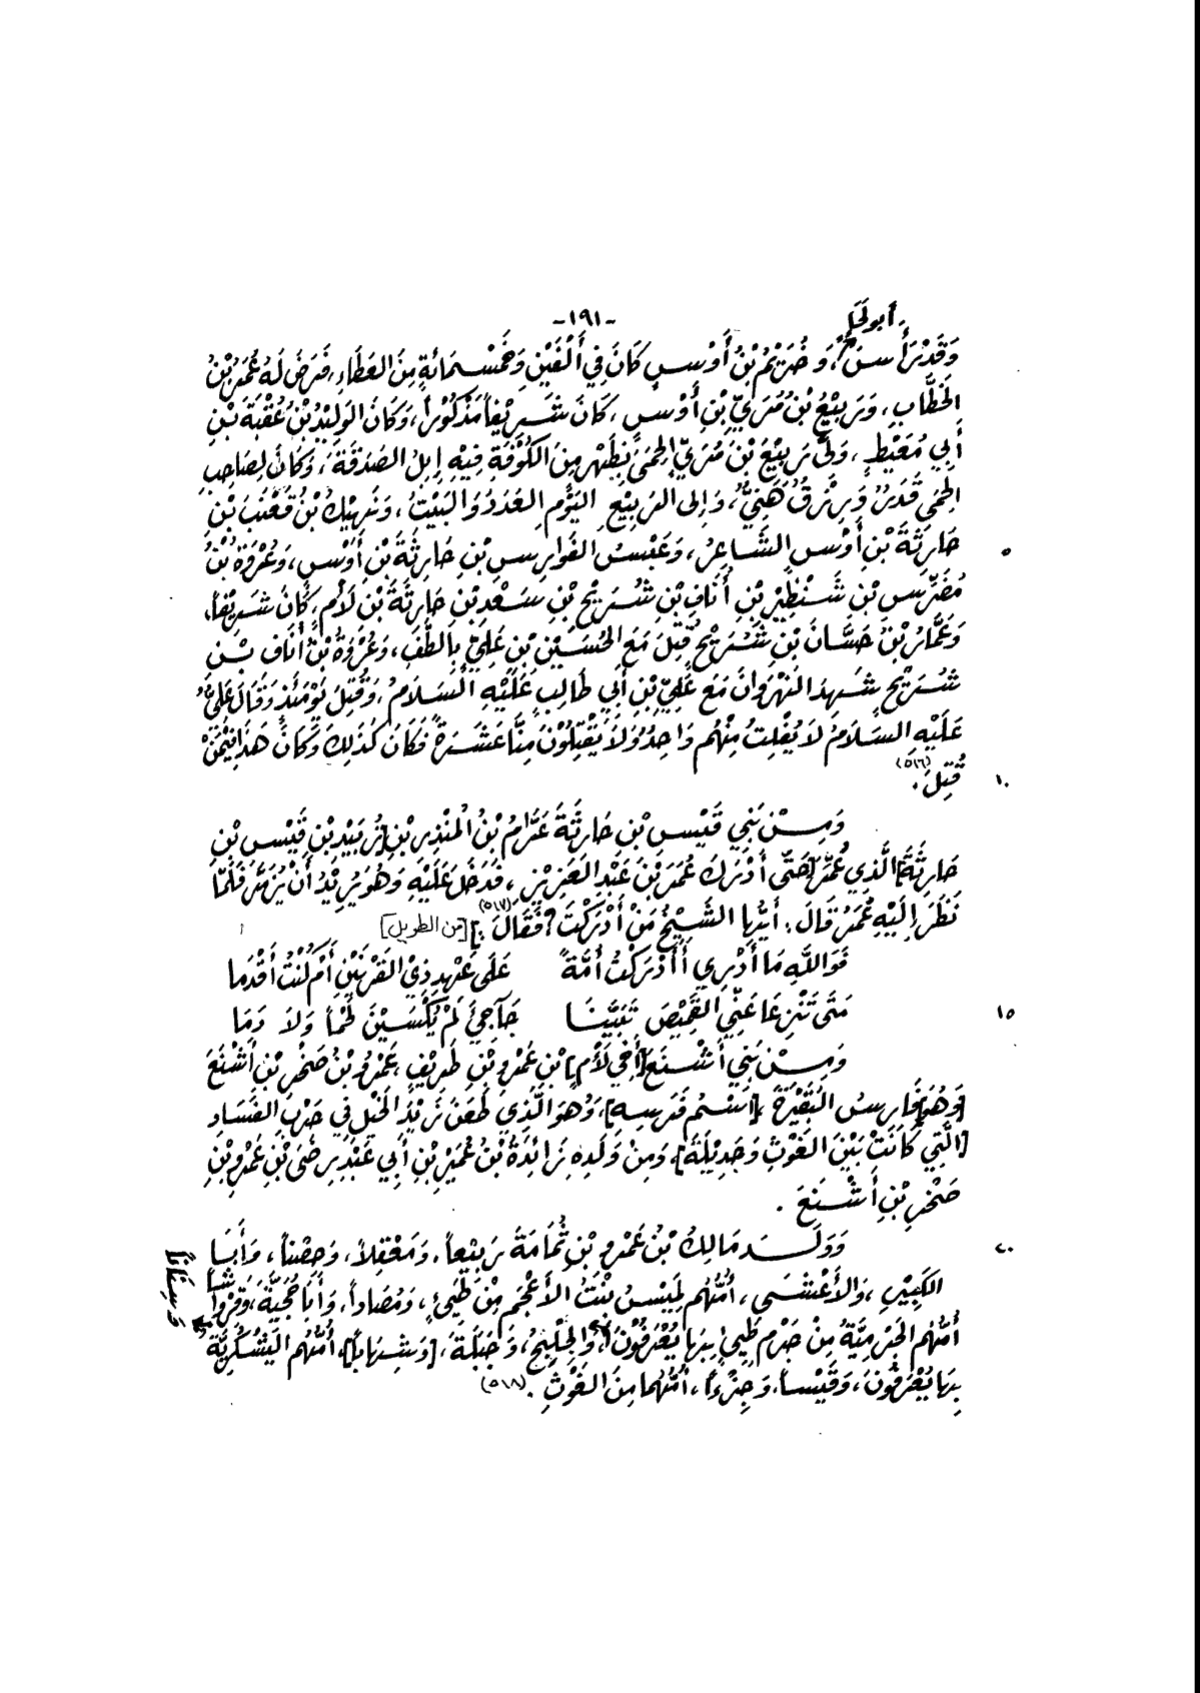 -١٩١-
أبو لَجَإٍ
وَقَدْ رَأَسَ، وَخُرَيْمُ بْنُ أَوْسٍ كَانَ فِي أَلْفَيْنِ وَخَمْسِمَائَةٍ مِنَ العَطَاءِ، فَرَضَ لَهُ عُمَرُ بْنُ
الخَطَّابِ، وَرَبِيْعُ بْنُ مُرَيِّ بْنِ أَوْسٍ، كَانَ شَرِيْفاً مَذْكُوْراً، وَكَانَ الوَلِيْدُ بْنُ عُقْبَةَ بْنِ
أَبِي مُعَيْطٍ، وَلَّى رَبِيْعَ بْنَ مُرَيٍّ الحِمَى بِظَهْرِ مِنَ الكُوْفَةِ فِيْهِ إِبِلُ الصَّدَقَةِ، وَكَانَ لِصَاحِبِ
الحِمَى قَدْرٌ وَرِزْقٌ هَنِيٌّ، وَإِلى الرَّبِيْعِ اليَوْمَ العَدَدُ وَالبَيْتُ، وَنَهِيْكُ بْنُ قُعْنَبَ بْنِ
حَارِثَةَ بْنِ أَوْسٍ الشَّاعِرُ، وَعَبْسُ الفَوَارِسِ بْنِ حَارِثَةَ بْنِ أَوْسٍ، وَعُرْوَةُ بْنُ
٥
مُضَرِّسِ بْنِ شَنْظِيْرِ بْنِ أُنَافِ بْنِ شُرَيْحِ بْنِ سَعْدِ بْنِ حَارِثَةَ بْنِ لَأْمٍ، كَانَ شَرِيْفاً،
وَعَمَّارُ بْنُ حَسَّانَ بْنِ شُرَيْحٍ قُتِلَ مَعَ الحُسَيْنِ بْنِ عَلِيٍّ بِالطَّفِّ، وَعُرْوَةُ بْنُ أُنَافِ بْنِ
شُرَيْحٍ شَهِدَ النَّهْرَوَانَ مَعَ عَلِيِّ بْنِ أَبِي طَالِبٍ عَلَيْهِ السَّلَامُ، وَقُتِلَ يَوْمَئِذٍ وَقَالَ عَلِيٌّ
عَلَيْهِ السَّلَامُ لَا يُفْلِتُ مِنْهُم وَاحِدٌ وَلَا يَقْتِلُوْنَ مِنَّا عَشَرَةً فَكَانَ كَذَلِكَ وَكَانَ هَذَا فِيْمَنْ
قُتِلَ.(٥١٦)
١٠
وَمِنْ بَنِي قَيْسِ بْنِ حَارِثَةَ عَرَّامُ بْنُ المُنْذِرِ بْنِ [زُبَيْدِ بْنِ قَيْسِ بْنِ
حَارِثَةَ] الَّذِي عُمِّرَ [حَتَّى أَدْرَكَ عُمَرَ بْنَ عَبْدِ العَزِيْزِ، فَدَخَلَ عَلَيْهِ وَهُوَ يُرِيْدُ أَنْ يُزَمَّنَ فَلَمَّا
نَظَرَ إِلَيْهِ عُمَرُ قَالَ: أَيُّهَا الشَّيْخُ مَنْ أَدْرَكْتَ؟ فَقَالَ:](٥١٧) [من الطويل]
فَوَاللَّهِ مَا أَدْرِي أَأَدْرَكْتُ أُمَّةً عَلَى عَهْدِ ذِي القَرْنَيْنِ أَمْ كُنْتُ أَقْدَمَا
مَتَى تَنْزِعَا عَنِّي القَمِيْصَ تَبَيَّنَا جَآجِئَ لَمْ يُكْسَيْنَ لَحْمًا وَلاَ دَمَا
١٥
وَمِنْ بَنِي أَشْنَعَ [أَخِي لَأْمِ] بْنِ عَمْرِو بْنِ طَرِيْفٍ، عَمْرُو بْنُ صَخْرِ بْنِ أَشْنَعَ
[وَهُوَ] فَارِسُ البُقَيْرَةِ، [اسْمُ فَرَسِهِ]، وَهُوَ الَّذِي طَعَنَ زَيْدَ الخَيْلِ فِي حَرْبِ الفَسَادِ
[الَّتِي كَانَتْ بَيْنَ الغَوْثِ وَجَدِيْلَةَ]، وَمِنْ وَلَدِهِ زَائِدَةُ بْنُ عُمَيْرِ بْنِ أَبِي عَبْدِ رِضَى بْنِ عَمْرِو بْنِ
صَخْرِ بْنِ أَشْنَعَ.
وَوَلَدَ مَالِكُ بْنُ عَمْرِو بْنِ ثُمَامَةَ رَبِيْعاً، وَمَعْقِلاً، وَحِصْناً، وَأَبَا
٢٠
وَسِنَاناً
الكَبِيْرِ، وَالأَعْشَى، أُمُّهُم لَمِيْسُ بِنْتُ الأَعْجَمِ مِنْ طَيِّئٍ، وَمُصَاداً، وَأَبَا حُجَيَّةَ، وَقِرْوَاشاً
أُمُّهُم الجَرْمِيَّةُ مِنْ جَرْمِ طَيِّئٍ بِهَا يُعْرَفُوْنَ، وَالجُلَيْحَ، وَجَبَلَةَ، [وَشِهَاباً]، أُمُّهُم اليَشْكُرِيَّةُ
بِهَا يُعْرَفُوْنَ، وَقَيْساً، وَجِزْءاً، أُمُّهُمَا مِنَ الغَوْثِ.(٥١٨)